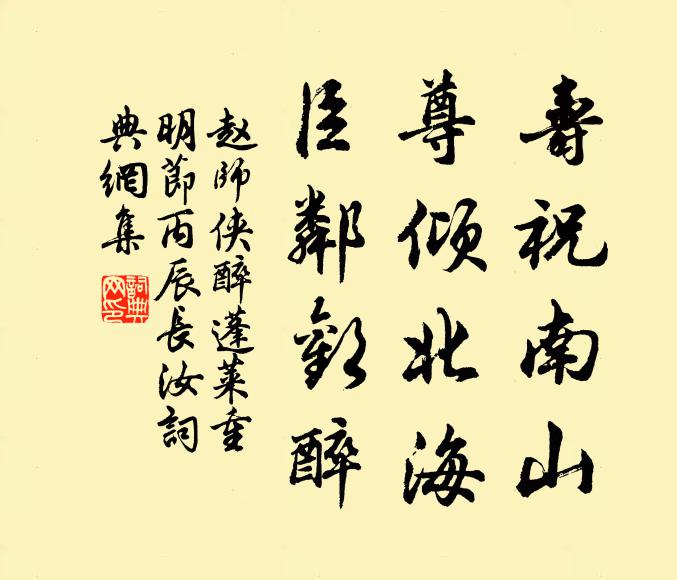 壽祝南山
尊傾北海
臣鄰歡醉
赵師侠醉蓬萊重
明節丙辰長汝詞
典網集
詞典
网印